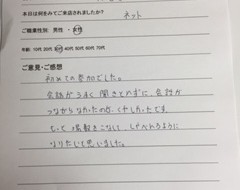 本日は何をみてご来店されましたか?
ネット
ご職業性別: 男性 ・ 女性
年齢: 10代 20代 30代 40代 50代 60代 70代
ご意見・ご感想
初めての参加でした。
会話がうまく聞きとれずに、会話が
つながらなかったのが、くやしかったです。
もっと場数をこなして、しゃべれるように
なりたいと思いました。